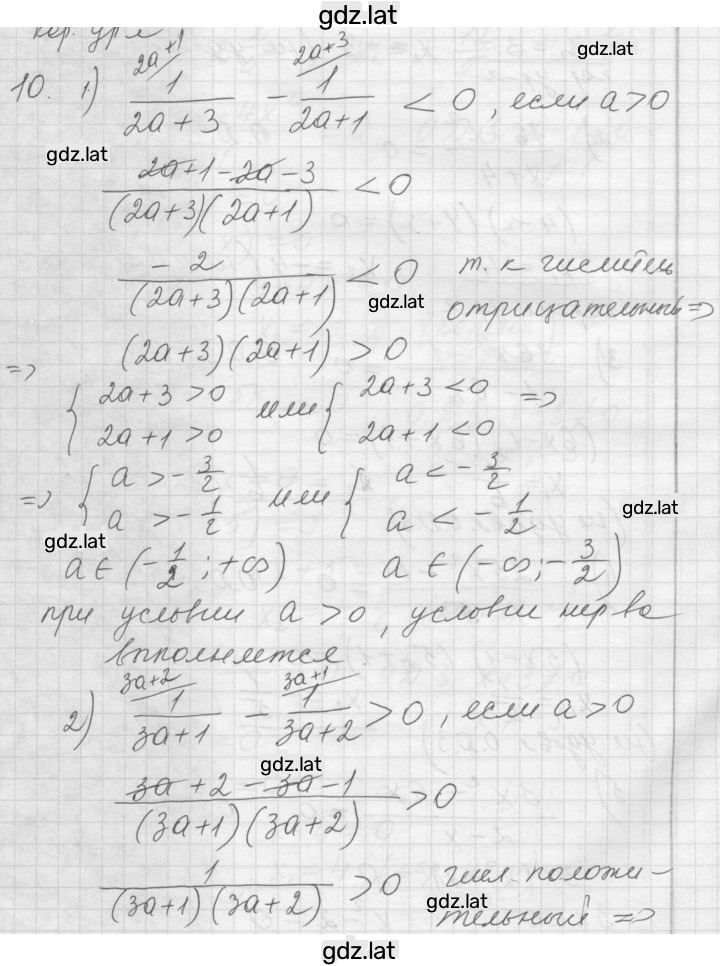 gdz.lat
кор. ур-я
gdz.lat
2a+1 2a+3
10. 1) 1/(2a+3) - 1/(2a+1) < 0, если a>0
gdz.lat
(2a+1-2a-3)/((2a+3)(2a+1)) < 0
-2/((2a+3)(2a+1)) < 0 т.к числитель
gdz.lat
отрицательный =>
=> (2a+3)(2a+1) > 0
{ 2a+3 >0 или { 2a+3 <0 =>
2a+1 >0 2a+1 <0
=> { a > -3/2 или { a < -3/2
a > -1/2 a < -1/2
gdz.lat
gdz.lat
a ∈ (-1/2; +∞) a ∈ (-∞; -3/2)
при условии a > 0, условие нер-ва
выполняется.
3a+2 3a+1
2) 1/(3a+1) - 1/(3a+2) > 0, если a>0
gdz.lat
(3a+2-3a-1)/((3a+1)(3a+2)) > 0
1/((3a+1)(3a+2)) > 0 числ. положи-
gdz.lat
тельный =>
gdz.lat